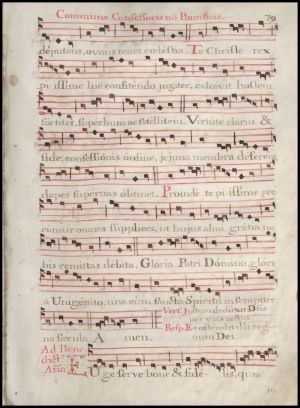 Commune Confessoris nõ Pontificis. 79
députans, ovans tenet cœlestia. Te Christe rex
pi issime huc confitendo jugiter, calcavit hostem
fortiter, superbum ac satellitem. Virtute clarus &
fide, confessiónis ordine, jejuna membra déferens,
dapes supérnas obtinet. Proinde te pi issime pre
cámur omnes supplices, ut hujus almi gratia no
bis remittas débita. Glória Patri Dómino, glori
a Unigénito, una cum Sancto Spiritu in sempiter
Vers. Justum deduxit Dñs
per vias rectas.
na sæcula A men.
Resp. Et ostendit illi reg
num Dei
Ad Bene
dict.
Aña.
E Uge serve bone & fidé lis, quia
in